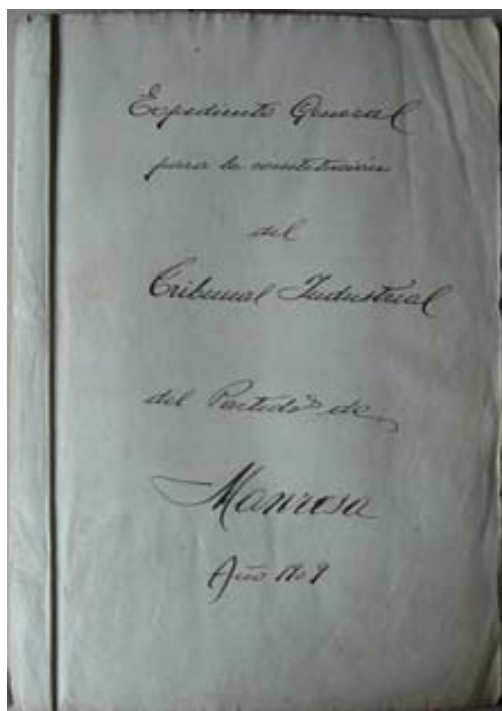 Expediente General
para la constitución
del
Tribunal Industrial
del Partido de
Manresa
Año 1909